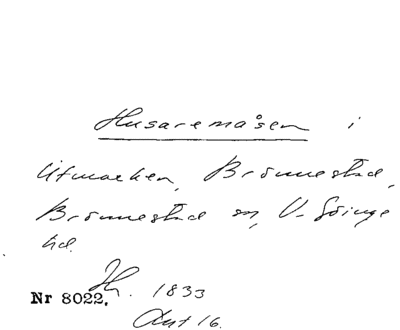 Husaremåsen i
Utmarken, Brönnestad,
Brönnestad sn, V. Göinge
hd.
H. 1833
Nr 8022.
Akt 16.